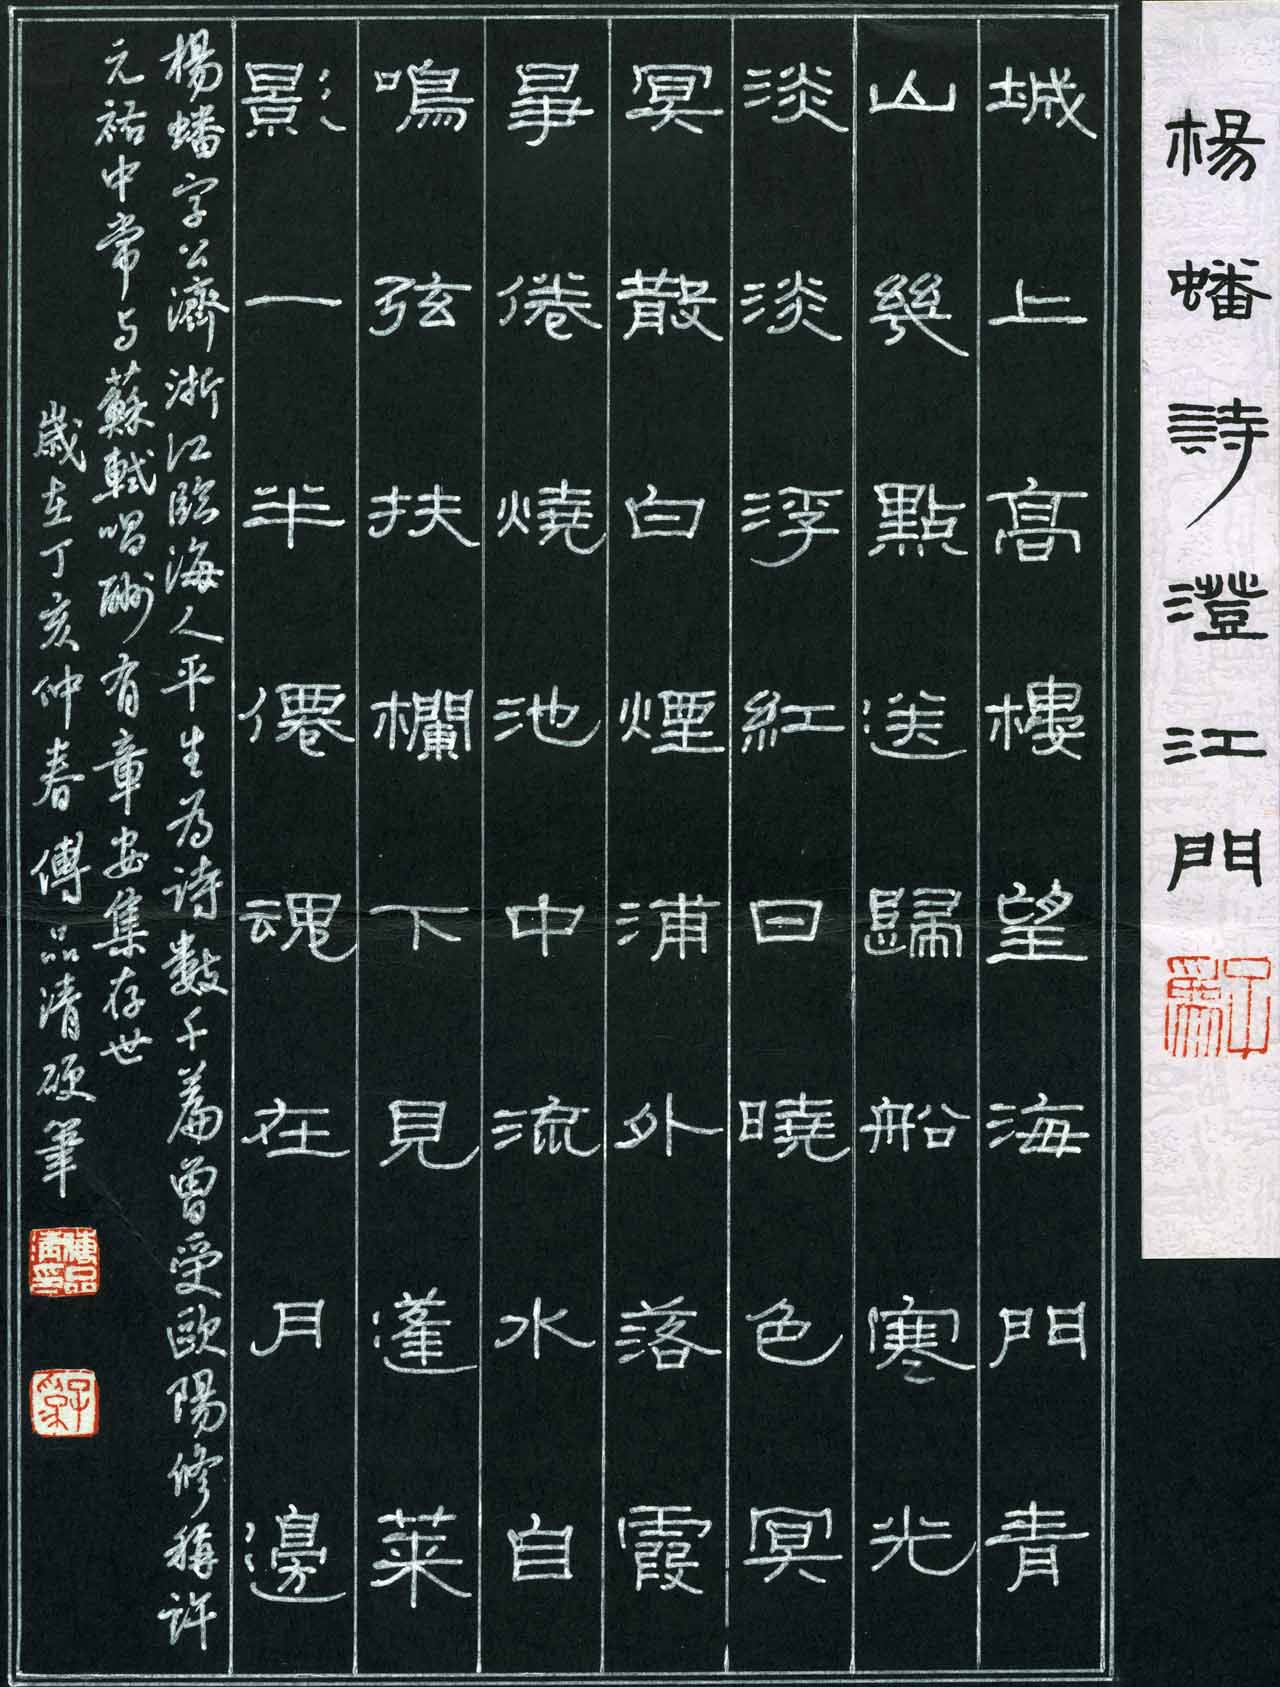 楊蟠詩澄江門
城上高樓望海門青
山幾點送歸船寒光
淡淡浮紅日曉色冥
冥散白煙浦外落霞
畢倦燒池中流水自
鳴弦扶欄下見蓬萊
影一半僊魂在月邊
楊蟠字公濟浙江臨海人平生為詩數千篇曾受歐陽修稱許
元祐中常与蘇軾唱酬有章安集存世
歲在丁亥仲春傅品清硬筆
傅品清印